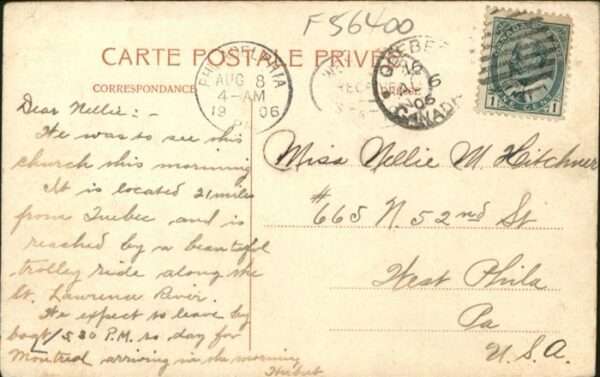 F56400
CARTE POSTALE PRIVÉE
CORRESPONDANCE
PHILADELPHIA
AUG 8
4-AM
1906
PA
RECEIVED
QUEBEC
AU 6
06
CANADA
1 1
Dear Nellie:-
We was to see this
church this morning
It is located 21 miles
from Quebec and is
reached by a beautiful
trolley ride along the
St. Lawrence River.
We expect to leave by
boat 5 30 P.M. to day for
Montreal arriving in the morning
Miss Nellie M. Hitchner
#665 N. 52nd St
West Phila
Pa
U.S.A.